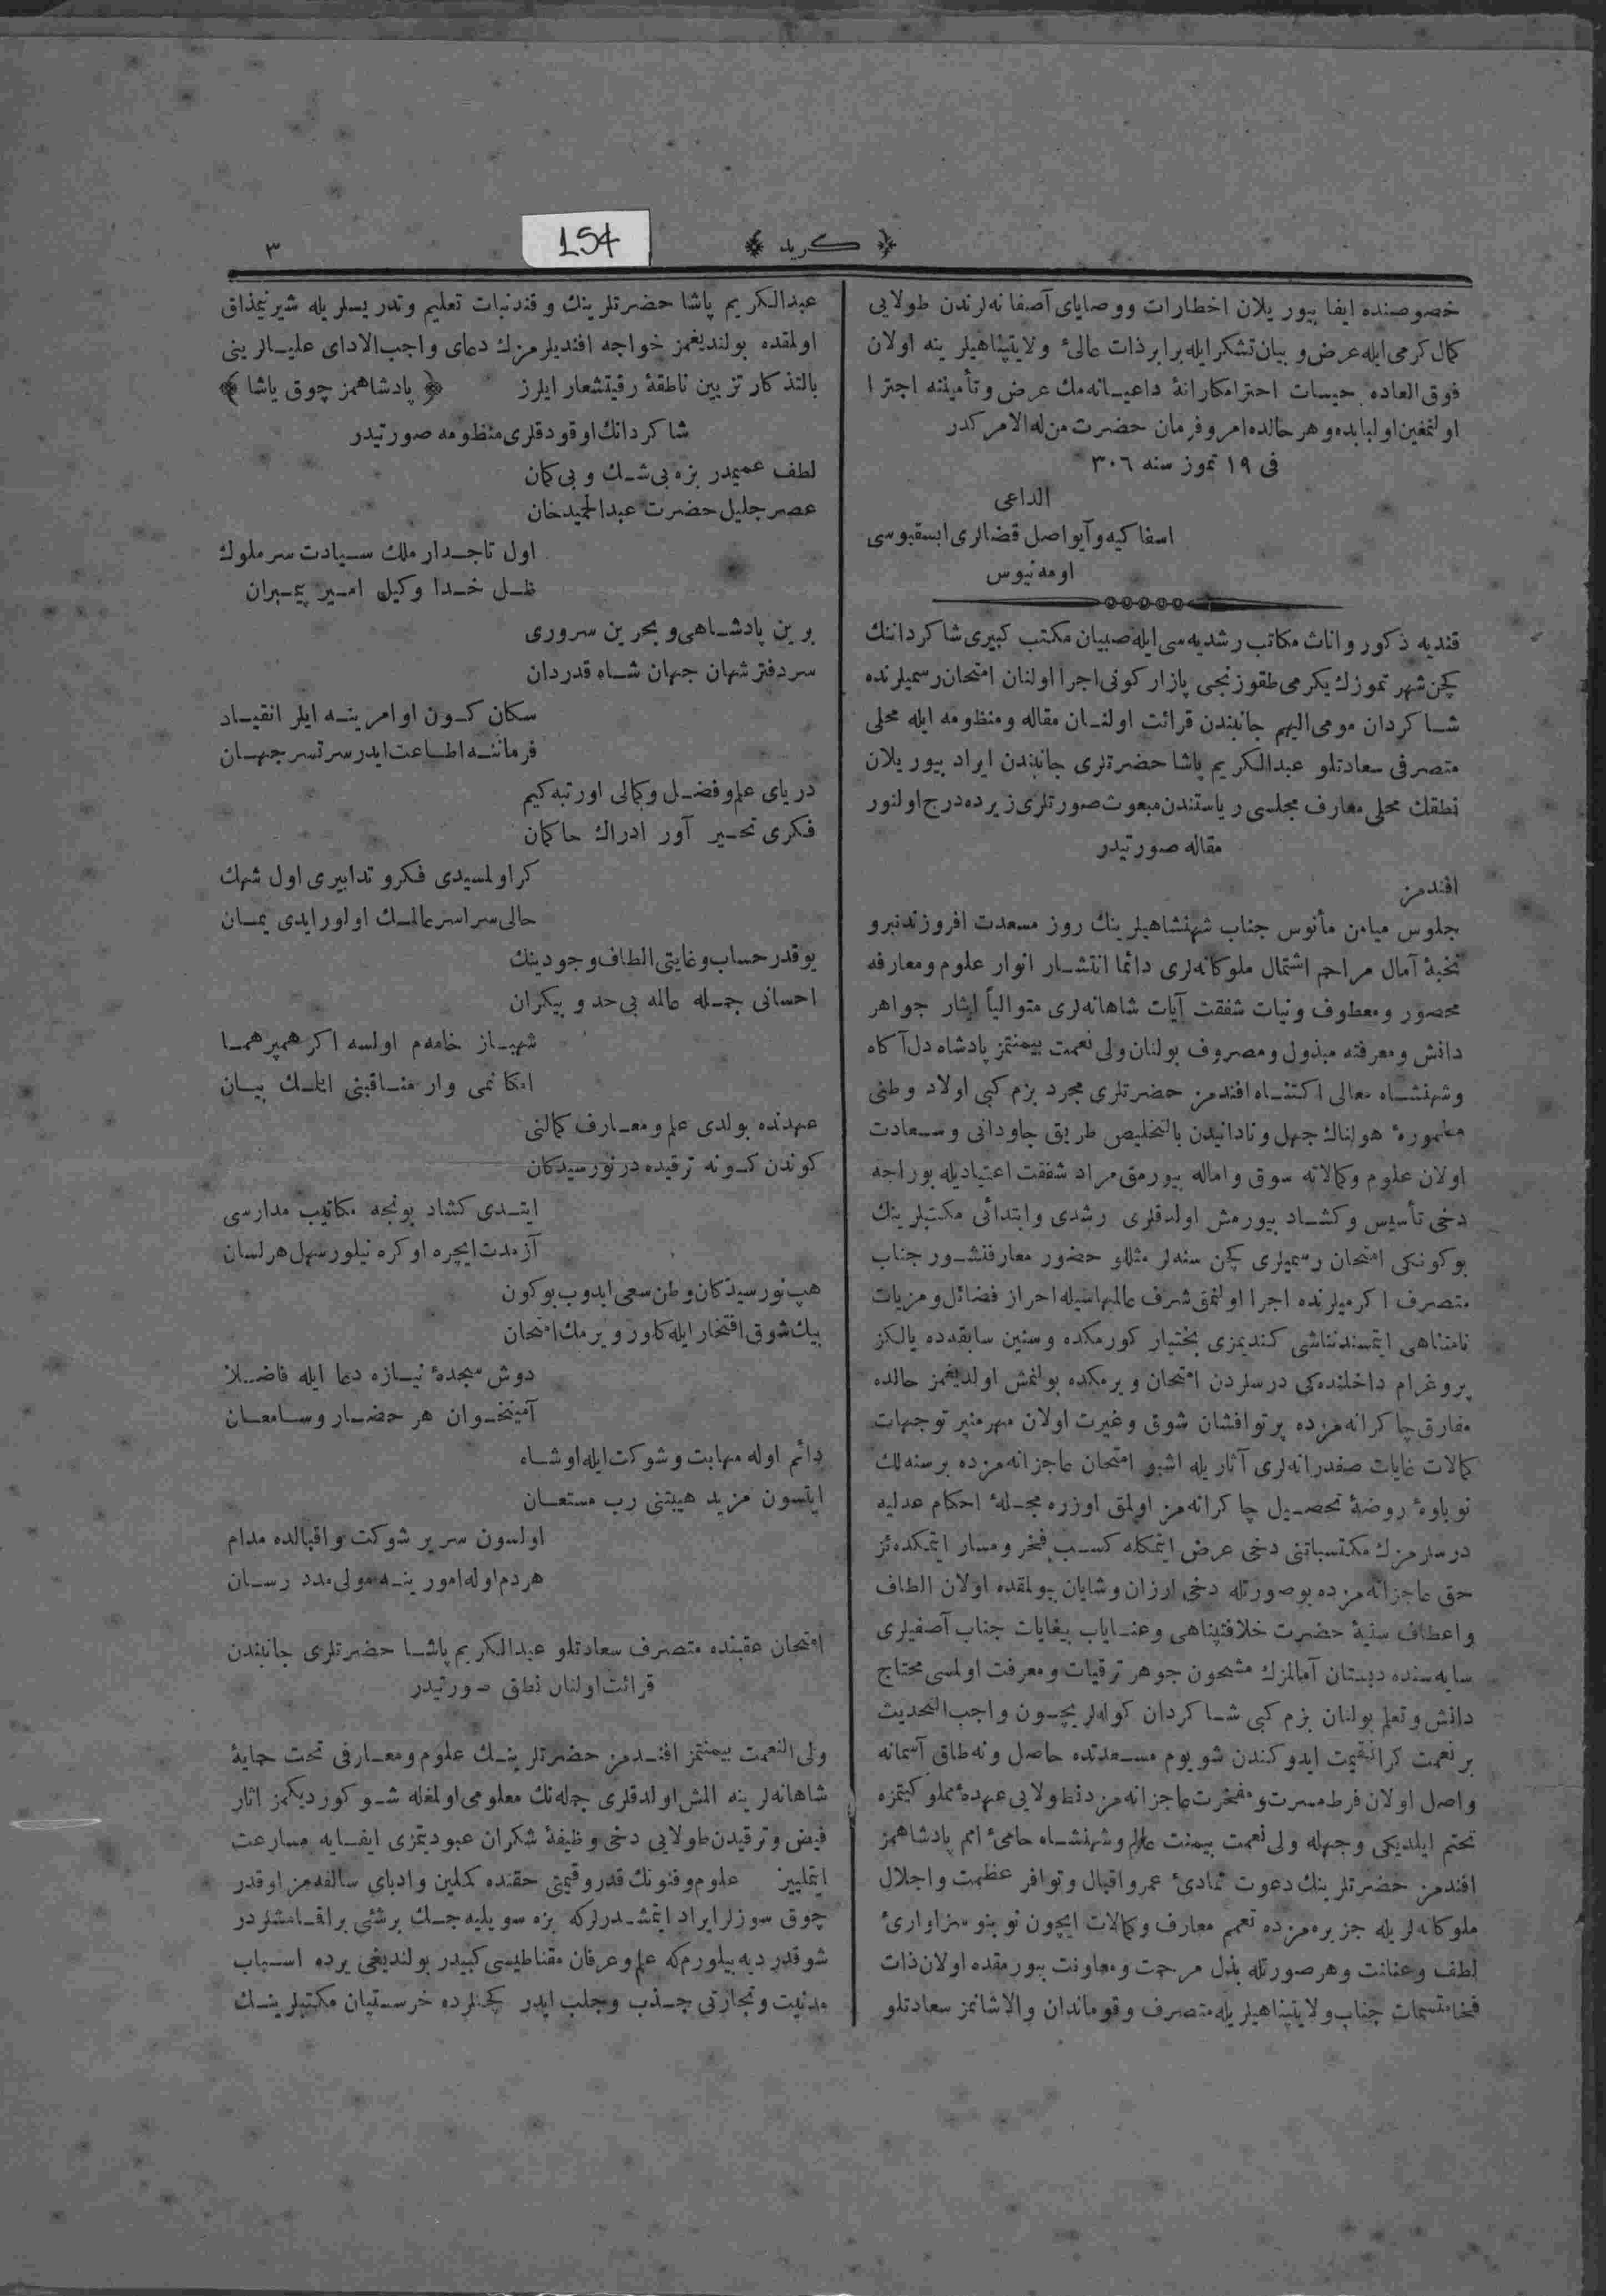 ﴿ كريد ﴾
154
٣
خصوصنده ايفا بيوريلان اخطارات ووصاياى آصفانه‌لرندن طولايى
كمال كرمى ايله عرض و بيان تشكر ايله برابر ذات عالئ ولايتپناهيلرينه اولان
فوق العاده حسيات احترامكارانهٔ داعيانه‌مك عرض وتأميننه اجترا
اولنمغين اولبابده و هر حالده امر و فرمان حضرت من له الامركدر
فى ١٩ تموز سنه ٣٠٦
الداعى
اسفاكيه و آيواصل قضالرى ابسقبوسى
اومه‌نيوس
قنديه ذكور و اناث مكاتب رشديه‌سى ايله صبيان مكتب كبيرى شاكرداننك
كچن شهر تموزك يكرمى طقوزنجى پازار كونى اجرا اولنان امتحان رسميلرنده
شاكردان مومى اليهم جانبندن قرائت اولنان مقاله و منظومه ايله محلى
متصرفى سعادتلو عبدالكريم پاشا حضرتلرى جانبندن ايراد بيوريلان
نطقك محلى معارف مجلسى رياستندن مبعوث صورتلرى زيرده درج اولنور
مقاله صورتيدر
افندمز
جلوس ميامن مأنوس جناب شهنشاهيلرينك روز مسعدت افروزندنبرو
نخبهٔ آمال مراحم اشتمال ملوكانه‌لرى دائما انتشار انوار علوم و معارفه
محصور و معطوف و نيات شفقت آيات شاهانه‌لرى متوالياً ايثار جواهر
دانش و معرفته مبذول و مصروف بولنان ولى نعمت بيمنتمز پادشاه دل آكاه
و شهنشاه معالى اكتناه افندمز حضرتلرى مجرد بزم كبى اولاد وطنى
مطمورهٔ هولناك جهل و نادانيدن بالتخليص طريق جاودانى وسعادت
اولان علوم و كمالاته سوق و اماله بيورمق مراد شفقت اعتياديله بوراجه
دخى تأسيس و كشاد بيورمش اولدقلرى رشدى و ابتدائى مكتبلرينك
بوكونكى امتحان رسميلرى كچن سنه‌لر مثللو حضور معارفنشور جناب
متصرف اكرميلرنده اجرا اولنمق شرف عالمبهاسيله احراز فضائل و مزيات
نامتناهى ايتمسندناشى كنديمزى بختيار كورمكده و سنين سابقه‌ده يالكز
پروغرام داخلنده‌كى درسلردن امتحان ويرمكده بولنمش اولديغمز حالده
مفارق چاكرانه‌مزده پرتوافشان شوق و غيرت اولان مهرمنير توجهات
كمالات غايات صفدرانه‌لرى آثاريله اشبو امتحان عاجزانه‌مزده برسنه‌لك
نوباوهٔ روضهٔ تحصيل چاكرانه‌مز اولمق اوزره مجلهٔ احكام عدليه
درسلرمزك مكتسباتنى دخى عرض ايتمكله كسب فخر و مسار ايتمكده‌ئز
حق عاجزانه‌مزده بوصورتله دخى ارزان و شايان بيولمقده اولان الطاف
و اعطاف سنيهٔ حضرت خلافتپناهى و عناياب بيغايات جناب آصفيلرى
سايه‌سنده دبستان آمالمزك مشحون جوهر ترقيات و معرفت اولمسى محتاج
دانش و تعلم بولنان بزم كبى شاكردان كوله‌لريچون واجب التحديث
بر نعمت كرانقيمت ايدوكندن شو يوم مسعدتده حاصل و نه طاق آسمانه
واصل اولان فرط مسرت و مفخرت عاجزانه‌مزدنطولايى عهدهٔ مملوكيتمزه
تحتم ايلديكى وجهله ولى نعمت بيمنت عالم و شهنشاه حامئ امم پادشاهمز
افندمز حضرتلرينك دعوت تمادئ عمر و اقبال و توافر عظمت و اجلال
ملوكانه‌لريله جزيره‌مزده تعمم معارف و كمالات ايچون نوبنو سزاوارئ
لطف و عنايت و هر صورتله بذل مرحمت و معاونت بيورمقده اولان ذات
فخامتسمات جناب ولايتپناهيلريله متصرف و قوماندان والاشانمز سعادتلو
عبدالكريم پاشا حضرتلرينك و قندنبات تعليم و تدريسلريله شيرنمذاق
اولمقده بولنديغمز خواجه افنديلرمزك دعاى واجب الاداى عليالرينى
بالتذكار تزيين ناطقهٔ رقيتشعار ايلرز ﴿ پادشاهمز چوق ياشا ﴾
شاكردانك اوقودقلرى منظومه صورتيدر
لطف عميمدر بزه بى شك و بى كمان
عصر جليل حضرت عبدالحميد خان
اول تاجدار ملك سيادت سرملوك
ظل خدا وكيل امير پيمبران
برين پادشاهى و بحرين سرورى
سردفتر شهان جهان شاه قدردان
سكان كون اوامرينه ايلر انقياد
فرماننه اطاعت ايدر سرتسر جهان
درياى علم و فضل و كمالى اورتبه كيم
فكرى تحير آور ادراك حاكمان
كر اولمسيدى فكر و تدابيرى اول شهك
حالى سراسر عالمك اولور ايدى يمان
يوقدر حساب و غايتى الطاف و جودينك
احسانى جمله عالمه بى حد و بيكران
شهباز خامه‌م اولسه اكر همپر هما
امكانمى وار مناقبنى ايلك بيان
عهدنده بولدى علم و معارف كمالنى
كوندن كونه ترقيده در نورسيدكان
ايتدى كشاد بونجه مكاتيب مدارسى
آز مدت ايچره اوكره نيلور سهل هر لسان
هپ نورسيدكان وطن سعى ايدوب بوكون
بيك شوق افتخار ايله كلور ويرمك امتحان
دوش سجدهٔ نيازه دعا ايله فاضلا
آمينخوان هر حضار و سامعان
دائم اوله مهابت و شوكت ايله او شاه
ايتسون مزيد هيبتنى رب مستعان
اولسون سرير شوكت و اقبالده مدام
هردم اوله امورينه مولى مدد رسان
امتحان عقبنده متصرف سعادتلو عبدالكريم پاشا حضرتلرى جانبندن
قرائت اولنان نطق صورتيدر
ولى النعمت بيمنتمز افندمز حضرتلرينك علوم و معارفى تحت حمايهٔ
شاهانه‌لرينه المش اولدقلرى جمله‌نك معلومى اولمغله شو كورديكمز اثار
فيض و ترقيدن طولايى دخى وظيفهٔ شكران عبوديتمزى ايفايه مسارعت
ايتمليز علوم و فنونك قدر و قيمتى حقنده كملين و ادباى سالفه‌مز اوقدر
چوق سوزلر ايراد ايتمشدرلركه بزه سويليه جك برشئى براقمامشلردر
شوقدر ديه بيلورم كه علم و عرفان مقناطيسى كبيدر بولنديغى يرده اسباب
مدنيت و تجارتى جذب و جلب ايدر كچنلرده خرستيان مكتبلرينك